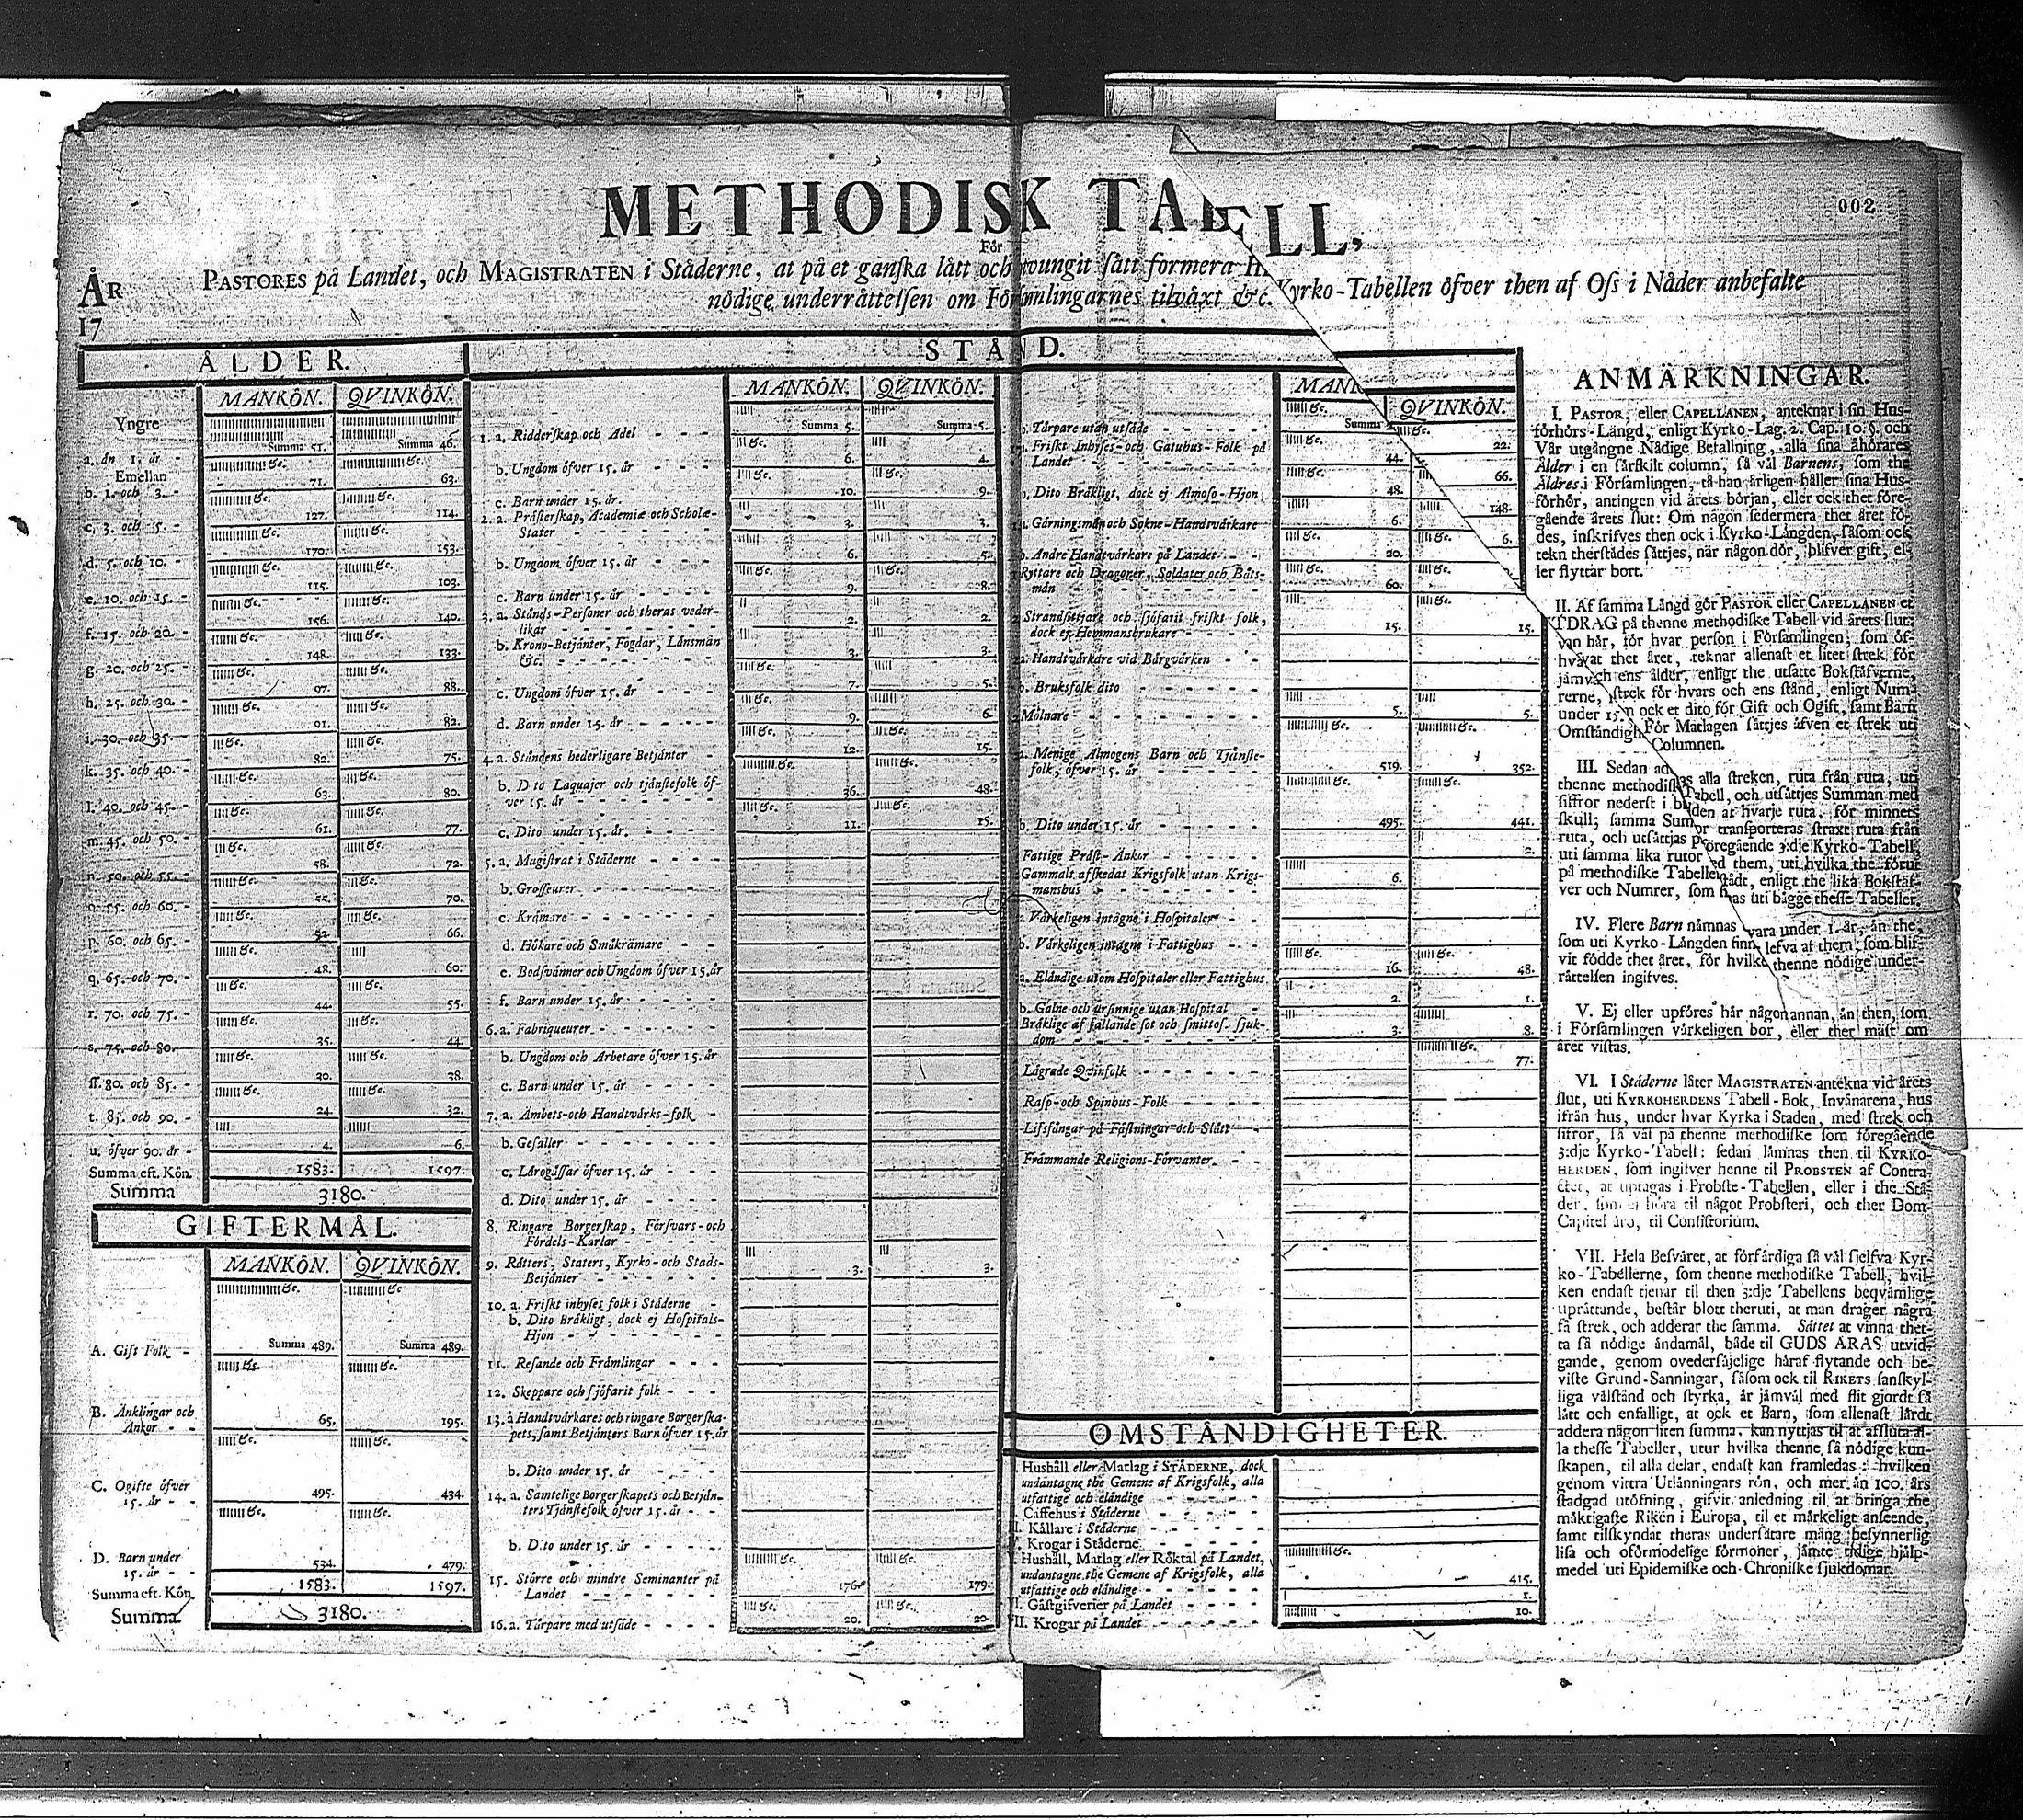 002
METHODISK TABELL,
För
PASTORES på Landet, och MAGISTRATEN i Städerne, at på et ganska lätt och twungit sätt formera Kyrko-Tabellen öfver then af Oss i Nåder anbefalte
nödige underrättelsen om Församlingarnes tilväxt &c.
ÅR
17
ÅLDER.
MANKÖN. QVINKÖN.
Yngre
a. än 1. år - Summa 51. Summa 46.
Emellan
b. 1. och 3. - 71. 63.
c. 3. och 5. - 127. 114.
d. 5. och 10. - 170. 153.
e. 10. och 15. - 115. 103.
f. 15. och 20. - 156. 140.
g. 20. och 25. - 148. 133.
h. 25. och 30. - 97. 88.
i. 30. och 35. - 91. 82.
k. 35. och 40. - 82. 75.
l. 40. och 45. - 63. 80.
m. 45. och 50. - 61. 77.
n. 50. och 55. - 58. 72.
o. 55. och 60. - 55. 70.
p. 60. och 65. - 52. 66.
q. 65. och 70. - 48. 60.
r. 70. och 75. - 44. 55.
s. 75. och 80. - 35. 44.
ss. 80. och 85. - 30. 38.
t. 85. och 90. - 24. 32.
u. öfver 90. år - 4. 6.
Summa eft. Kön. 1583. 1597.
Summa 3180.
GIFTERMÅL.
MANKÖN. QVINKÖN.
A. Gift Folk - Summa 489. Summa 489.
B. Änklingar och
Änkor - - 65. 195.
C. Ogifte öfver
15. år - - 495. 434.
D. Barn under
15. år - - 534. 479.
Summa eft. Kön. 1583. 1597.
Summa 3180.
STÅND.
MANKÖN. QVINKÖN.
1. a. Ridderskap och Adel - - - Summa 5. Summa 5.
b. Ungdom öfver 15. år - - - 6. 4.
c. Barn under 15. år. 10. 9.
2. a. Prästerskap, Academiæ och Scholæ-
Stater - - - 3. 3.
b. Ungdom öfver 15. år - - - 6. 5.
c. Barn under 15. år - - - 9. 8.
3. a. Stånds-Personer och theras veder-
likar - - - 2. 2.
b. Krono-Betjänter, Fogdar, Länsmän
&c. - - - 3. 3.
c. Ungdom öfver 15. år - - - 7. 5.
d. Barn under 15. år - - - 9. 6.
4. a. Ståndens hederligare Betjänter - 12. 15.
b. Dito Laquajer och tjänstefolk öf-
ver 15. år - - - 36. 48.
c. Dito under 15. år. - - - 11. 15.
5. a. Magistrat i Städerne - - -
b. Grosseurer - - -
c. Krämare - - -
d. Hökare och Småkrämare - -
e. Bodsvänner och Ungdom öfver 15. år
f. Barn under 15. år - - -
6. a. Fabriqueurer - - -
b. Ungdom och Arbetare öfver 15. år
c. Barn under 15. år - - -
7. a. Ämbets-och Handtvärks-folk -
b. Gesäller - - -
c. Lärogåssar öfver 15. år - - -
d. Dito under 15. år - - -
8. Ringare Borgerskap, Försvars-och
Fördels-Karlar - - -
9. Rätters, Staters, Kyrko-och Stads-
Betjänter - - - 3. 3.
10. a. Friskt inhyses folk i Städerne -
b. Dito Bräkligt, dock ej Hospitals-
Hjon - - -
11. Resande och Främlingar - - -
12. Skeppare och sjöfarit folk - - -
13. a Handtvärkares och ringare Borgerska-
pets, samt Betjänters Barn öfver 15. år
b. Dito under 15. år - - -
14. a. Samtelige Borgerskapets och Betjän-
ters Tjänstefolk öfver 15. år - -
b. Dito under 15. år - - -
15. Större och mindre Seminanter på
Landet - - - 176. 179.
16. a. Tårpare med utsäde - - - 20. 20.
QVINKÖN.
b. Tårpare utan utsäde - - - 22.
Friskt Inhyses-och Gatuhus-Folk på
Landet - - - 44. 66.
b. Dito Bräkligt, dock ej Almoso-Hjon 48. 148.
Gärningsmän och Sokne-Handtvärkare 6. 6.
b. Andre Handtvärkare på Landet - - 20.
Ryttare och Dragoner, Soldater och Båts-
män - - - 60.
Strandsittjare och sjöfarit friskt folk,
dock ej Hemmansbrukare - - - 15. 15.
Handtvärkare vid Bärgvärken -
b. Bruksfolk dito - - -
Mölnare - - - 5. 5.
a. Menige Almogens Barn och Tjänste-
folk, öfver 15. år - - - 519. 352.
b. Dito under 15. år - - - 495. 441.
Fattige Präst-Änkor - - - 2.
Gammalt afskedat Krigsfolk utan Krigs-
manshus - - - 6.
a. Värkeligen intagne i Hospitaler -
b. Värkeligen intagne i Fattighus -
a. Eländige utom Hospitaler eller Fattighus 16. 48.
b. Galne och ursinnige utan Hospital - 2. 1.
Bräklige af fallande sot och smittos. sjuk-
dom - - - 3. 8.
Lägrade Qvinfolk - - - 77.
Rasp-och Spinhus-Folk - - -
Lifsfångar på Fästningar och Slått
Främmande Religions-Förvanter -
OMSTÄNDIGHETER.
Hushåll eller Matlag i STÄDERNE, dock
undantagne the Gemene af Krigsfolk, alla
utfattige och eländige - - -
Caffehus i Städerne - - -
Källare i Städerne - - -
Krogar i Städerne - - -
Hushåll, Matlag eller Röktal på Landet,
undantagne the Gemene af Krigsfolk, alla
utfattige och eländige - - - 415.
Gästgifverier på Landet - - - 1.
II. Krogar på Landet - - - 10.
ANMÄRKNINGAR.
I. PASTOR, eller CAPELLANEN, anteknar i sin Hus-
förhörs-Längd, enligt Kyrko-Lag. 2. Cap. 10. §. och
Vår utgångne Nådige Befallning, alla sina åhörares
Ålder i en särskilt column, så väl Barnens, som the
Äldres i Församlingen, tå han årligen håller sina Hus-
förhör, antingen vid årets början, eller ock thet före-
gående årets slut: Om någon sedermera thet året fö-
des, inskrifves then ock i Kyrko-Längden, såsom ock
tekn therstädes sättjes, när någon dör, blifver gift, el-
ler flyttar bort.
II. Af samma Längd gör PASTOR eller CAPELLANEN et
TDRAG på thenne methodiske Tabell vid årets slut;
van här, för hvar person i Församlingen, som öf-
hvavat thet året, teknar allenast et litet strek för
jämväh ens ålder, enligt the utsatte Bokstäfverne,
rerne, strek för hvars och ens stånd, enligt Num-
under 15. n ock et dito för Gift och Ogift, samt Barn
Omständigh För Matlagen sättjes äfven et strek uti
Columnen.
III. Sedan ad as alla streken, ruta från ruta, uti
thenne methodisk Tabell, och utsättjes Summan med
siffror nederst i b den af hvarje ruta, för minnets
skull; samma Sum or transporteras straxt ruta från
ruta, och utsättjas föregående 3:dje Kyrko-Tabell,
uti samma lika rutor ed them, uti hvilka the förut
på methodiske Tabelle städt, enligt the lika Bokstäf-
ver och Numrer, som f as uti bägge thesse Tabeller.
IV. Flere Barn nämnas vara under 1. år, än the,
som uti Kyrko-Längden finn lefva af them, som blif-
vit födde thet året, för hvilk thenne nödige under-
rättelsen ingifves.
V. Ej eller upföres här någon annan, än then, som
i Församlingen värkeligen bor, eller ther mäst om
året vistas.
VI. I Städerne låter MAGISTRATEN antekna vid årets
slut, uti KYRKOHERDENS Tabell-Bok, Invånarena, hus
ifrån hus, under hvar Kyrka i Staden, med strek och
siffror, så väl på thenne methodiske som föregående
3:dje Kyrko-Tabell: sedan lämnas then til KYRKO-
HERDEN, som ingifver henne til PROBSTEN af Contra-
ctet, at uptagas i Probste-Tabellen, eller i the Stä-
der, som ej höra til något Probsteri, och ther Dom-
Capitel äro, til Consistorium.
VII. Hela Besväret, at förfärdiga så väl sjelfva Kyr-
ko-Tabellerne, som thenne methodiske Tabell, hvil-
ken endast tienar til then 3:dje Tabellens beqvämlige
uprättande, består blott theruti, at man drager några
få strek, och adderar the samma. Sättet at vinna thet-
ta så nödige ändamål, både til GUDS ÄRAS utvid-
gande, genom ovedersäjelige häraf flytande och be-
viste Grund-Sanningar, såsom ock til RIKETS sanskyl-
liga välstånd och styrka, är jämväl med flit gjordt så
lätt och enfalligt, at ock et Barn, som allenast lärdt
addera någon liten summa, kan nyttjas til at afsluta al-
la thesse Tabeller, utur hvilka thenne så nödige kun-
skapen, til alla delar, endast kan framledas: hvilken
genom vittra Utlänningars rön, och mer än 100. års
stadgad utöfning, gifvit anledning til at bringa the
mäktigaste Riken i Europa, til et märkeligt anseende,
samt tilskyndat theras undersåtare mång besynnerlig
lisa och oförmodelige förmoner, jämte tidige hjälp-
medel uti Epidemiske och Chroniske sjukdomar.